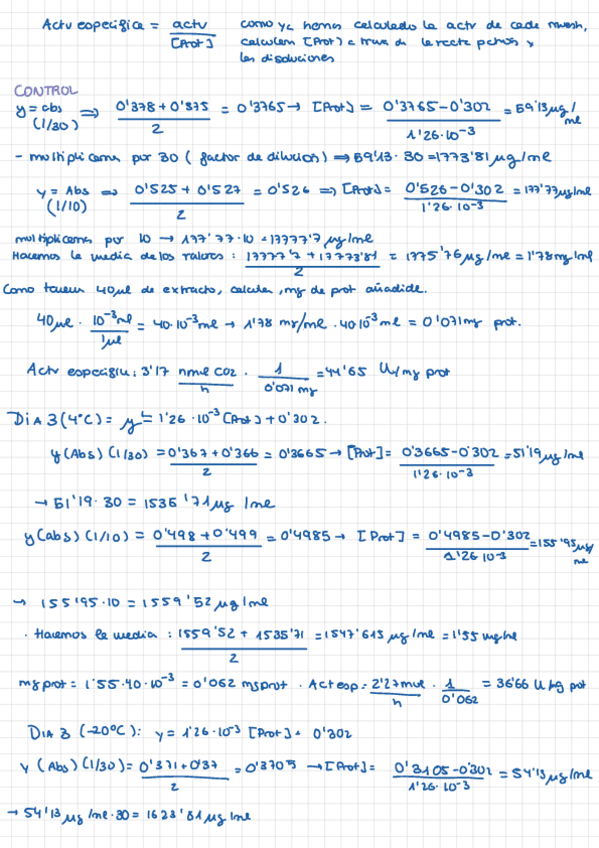 Actv especifica = actv / [Prot] como ya hemos calculado la actv de cada muestra,
calculam [Prot] a traves de la recta patron y
las disoluciones
CONTROL
y = abs (1/30) ⟹ 0'378 + 0'375 / 2 = 0'3765 → [Prot] = 0'3765 - 0'302 / 1'26·10⁻³ = 59'13 µg/ml
- multiplicams por 30 (factor de dilucion) ⟹ 59'13 · 30 = 1773'81 µg/ml
y = Abs (1/10) ⟹ 0'525 + 0'527 / 2 = 0'526 ⟹ [Prot] = 0'526 - 0'302 / 1'26·10⁻³ = 177'77 µg/ml
multiplicams por 10 → 177'77·10 = 17777'7 µg/ml
Hacemos la media de los valores : 17777'7 + 17773'81 / 2 = 1775'76 µg/ml = 1'78 mg/ml
Como tenem 40µl de extracto, calculam, mg de prot añadida.
40µl · 10⁻³ml / 1µl = 40·10⁻³ml → 1'78 mg/ml · 40·10⁻³ml = 0'071mg prot.
Actv especifica: 3'17 nmol CO2 / h · 1 / 0'071 mg = 44'65 U/mg prot
DiA 3 (4°C) = y = 1'26·10⁻³ [Prot] + 0'302.
y (Abs) (1/30) = 0'367 + 0'366 / 2 = 0'3665 → [Prot] = 0'3665 - 0'302 / 1'26·10⁻³ = 51'19 µg/ml
→ 51'19 · 30 = 1535'71 µg/ml
y (abs) (1/10) = 0'498 + 0'499 / 2 = 0'4985 → [Prot] = 0'4985 - 0'302 / 1'26·10⁻³ = 155'95 µg/ml
→ 155'95·10 = 1559'52 µg/ml
· Hacemos la media : 1559'52 + 1535'71 / 2 = 1547'615 µg/ml = 1'55 mg/ml
mg prot = 1'55·40·10⁻³ = 0'062 mg prot · Act esp = 2'27 mol / h · 1 / 0'062 = 36'66 U/g prot
DiA 3 (-20°C): y = 1'26·10⁻³ [Prot] + 0'302
y (Abs) (1/30) = 0'371 + 0'37 / 2 = 0'3705 → [Prot] = 0'3105 - 0'302 / 1'26·10⁻³ = 54'13 µg/ml
→ 54'13 µg/ml · 30 = 1623'81 µg/ml